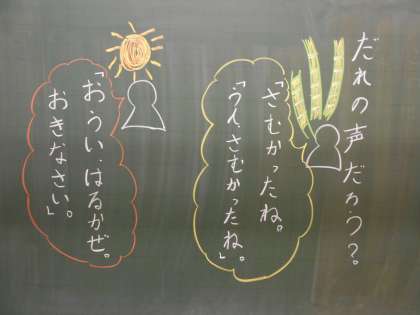 だれの声だろう?
「さむかったね。
「うん、さむかったね」。
「お・うい・はるかぜ。
おきなさい」。